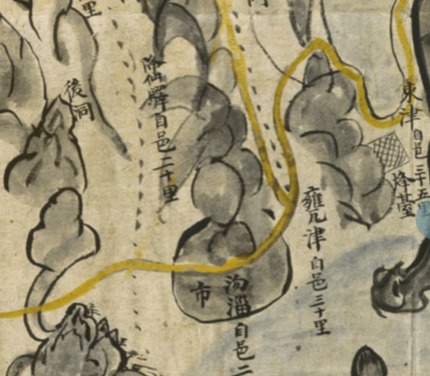 東津自邑三十五里
烽臺
雍凡津自邑三十里
自邑二
市
降仙驛自邑二十里
後洞
里